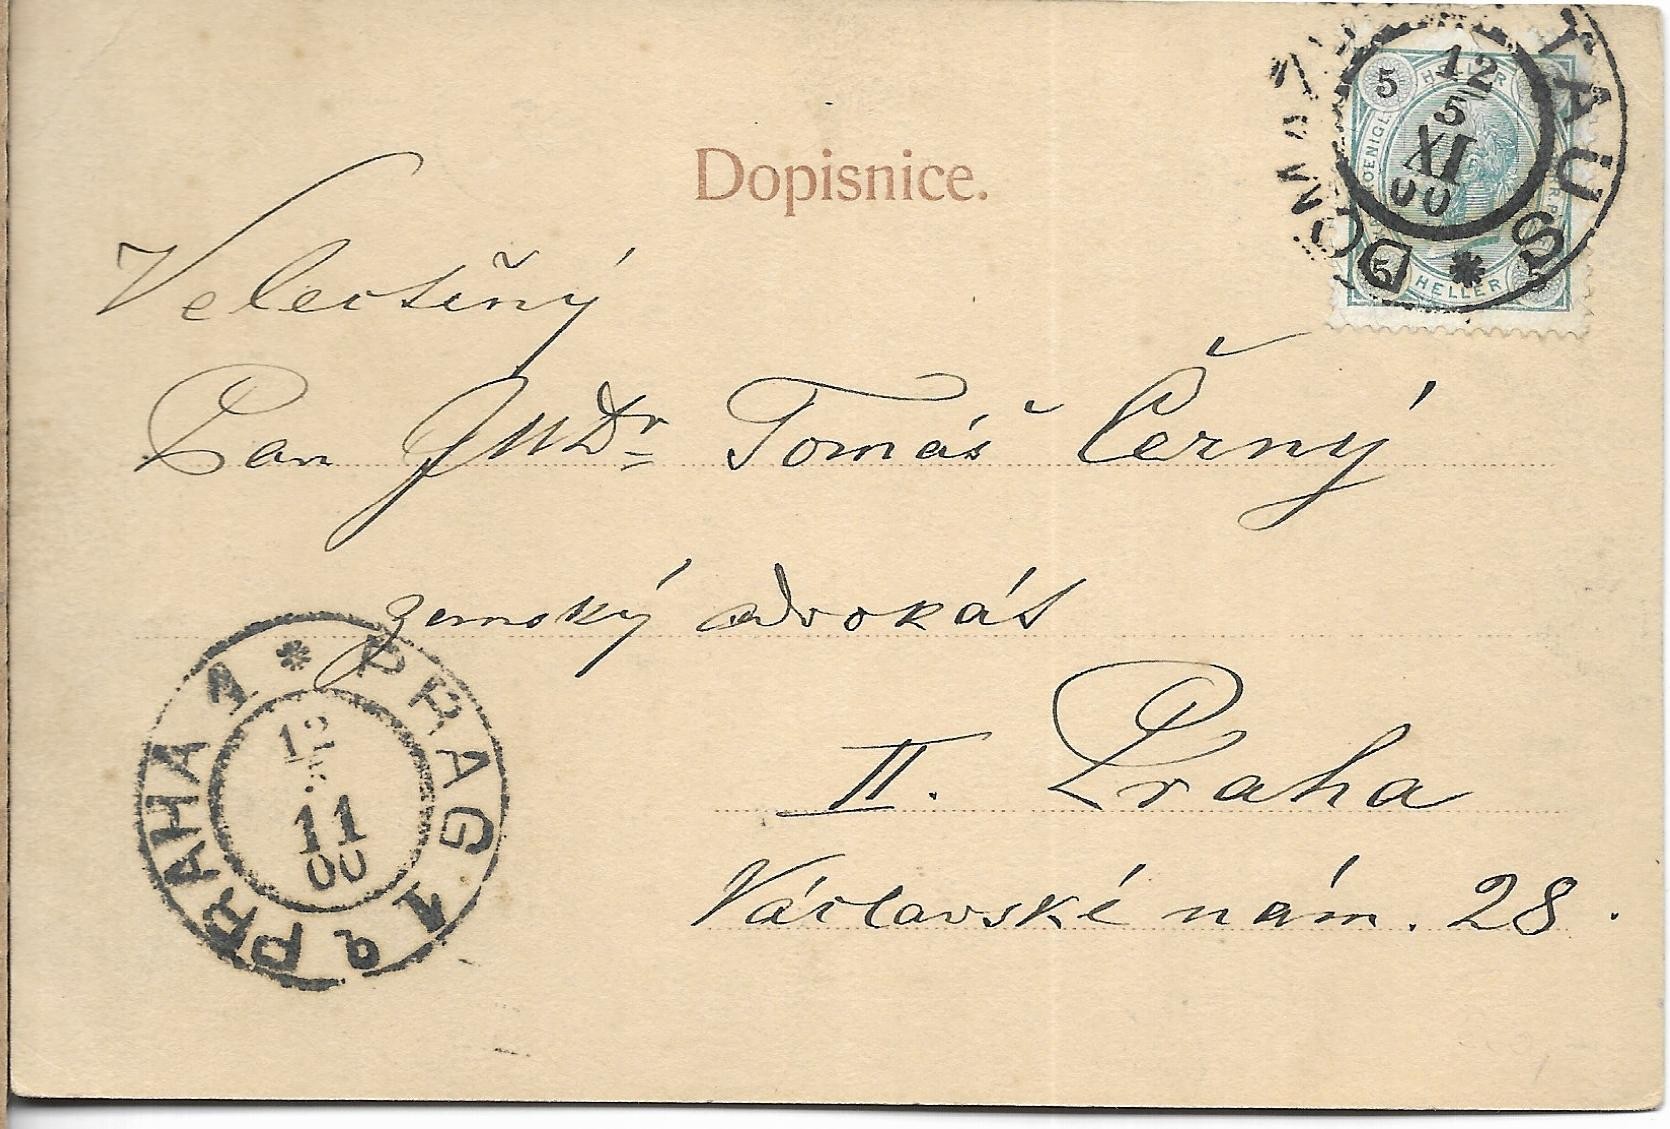 Dopisnice.
5 HELLER
5 HELLER
TAUS * DOMAŽ
12
5
XI
00
Velectěný
Pan JUDr Tomáš Černý
zemský advokát
II. Praha
Václavské nám. 28.
PRAHA 1 * PRAG 1
12
11
00